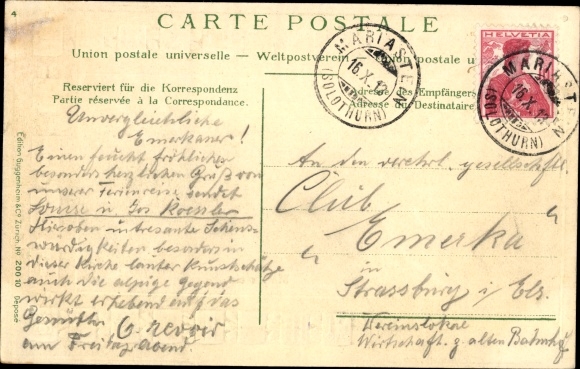 4
CARTE POSTALE
Union postale universelle — Weltpostverein — Union postale u
HELVETIA
MARIASTEIN
16.X.12
(SOLOTHURN)
MARIASTEIN
16.X.12
(SOLOTHURN)
Reserviert für die Korrespondenz
Partie réservée à la Correspondance.
Adresse des Empfängers
Adresse du Destinataire
Unvergleichliche
Emerkaner!
Einen feucht fröhlichen
besonders herzlichen Gruß von
unserer Ferienreise sendet
Louise u Jos Koessler
Hieroben intresante Sehens-
würdigkeiten besonders in
dieser Kirche lauter Kunstschätze
auch die alpige Gegend
wirkt erhebend auf das
Gemüth
O revoir
am Freitag abend.
An den verehrl gesellschaftl.
Club
„ Emerka “
in
Strassburg i/ Els.
Vereinslokal
Wirtschaft. z. alten Bahnhof
Edition Guggenheim & Co, Zürich, No. 20010 Déposé